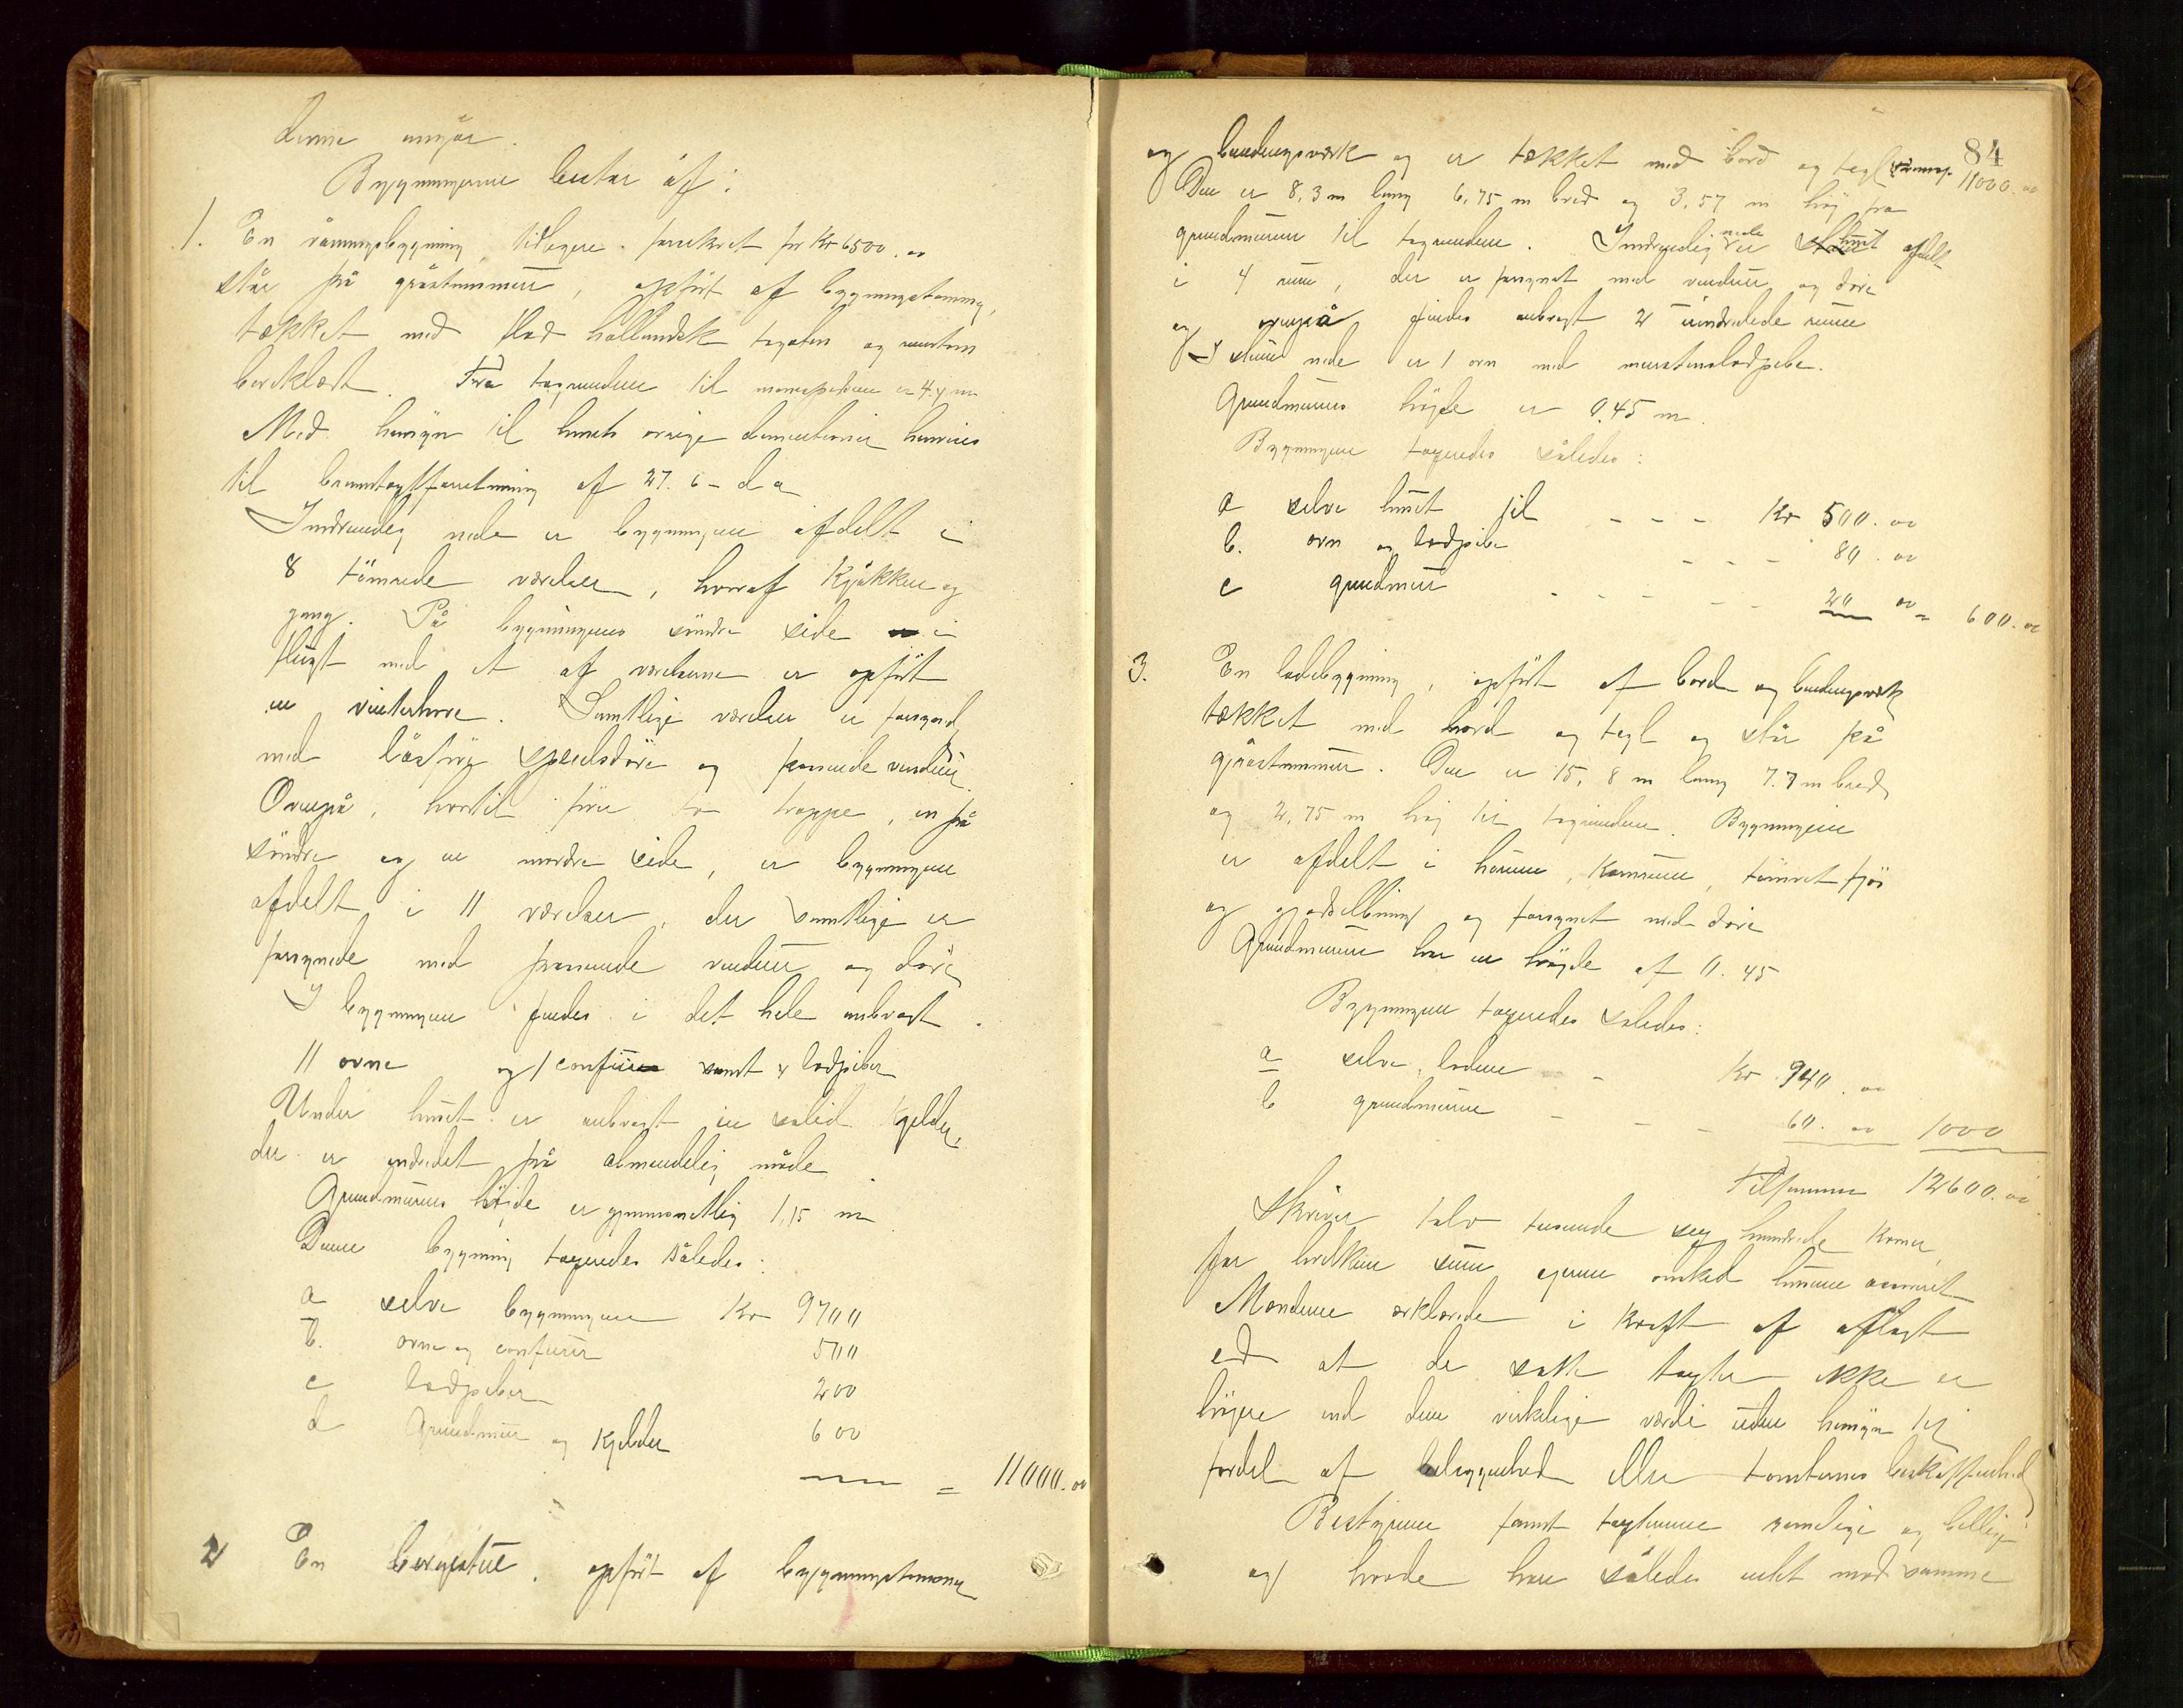 denne angår.
Bygningerne bestar af:
1. En våningsbygning, tidligere forsikret for Kr 6500.00
står på gråstensmur, opført af bygningstømmer,
tækket med flad hollandsk tagsten og
bordklædt. Fra tagrenden til er 4.4 m
Med hensyn til husets øvrige dimentioner henvises
til branntagstforretning af 27. 6 - d a
Indvendig nede er bygningen afdelt i
8 tømrede værelser, hvoraf Kjøkken og
gang. På bygningens søndre side i
flugt med et af værelserne er opført
en vinterhave. Samtlige værelser er forsynet
med låsfør speilsdøre og passende vinduer
Ovenpå, hvortil fører to trappe, en på
søndre og en nordre side, er bygningen
afdelt i 11 værelser, der samtlige er
forsynede med passende vinduer og døre
I bygningen findes i det hele anbragt
11 ovne og 1 comfur samt 4 ladpiber
Under huset er anbragt en solid Kjelder,
der er indredet på almindelig måde
Grundmurens høide er gjennemsnitlig 1,15 m
Denne bygning taxeredes således:
a selve bygningen Kr 9700
b. ovne og comfurer 500
c ladpiber 200
d Grundmur og Kjelder 600
= 11000.00
2 En borgestue, opført af bygningstømmer
84
og bindingsværk og er tækket med bord og tagl 11000.00
Den er 8,3 m lang 6,75 m bred og 3,57 m høj fra
grundmuren til tagrenden. Indvendig nede er huset afdelt
i 4 rum, der er forsynet med vinduer og døre
og ovenpå findes anbragt 2 uindredede rum
I stuen nede er 1 ovn med murstensladpibe.
Grundmurens høyde er 0,45 m.
Bygningen taxeredes således:
a selve huset til - - - Kr 500.00
b. ovn og ladpibe - - - 80.00
c grundmur - - - - - 20 00 = 600.00
3. En ladebygning, opført af bord og bindingsværk
tækket med bord og tagl og står på
gråstensmur. Den er 15,8 m lang 7.7 m bred
og 2,75 m høj til tagrenden. Bygningen
er afdelt i hørum, Kornrum, tømret fjøs
og og forsynet med døre
Grundmuren har en høyde af 0.45
Bygningen taxeredes således:
a selve laden - Kr 940.00
b grundmuren - - - 60.00 1000
Tilsammen 12600.00
Skriver tolv tusende sex hundrede Kroner,
for hvilken sum ejeren ønsked husene assureret
Mændene erklærede i Kraft af aflagt
ed at de satte taxter ikke er
høyere end den virkelige værdi uden hensyn til
fordel af beliggenhed eller tomternes beskaffenhed
Bestyreren fandt taxterne rimelige og billige
og havde han således intet mod samme